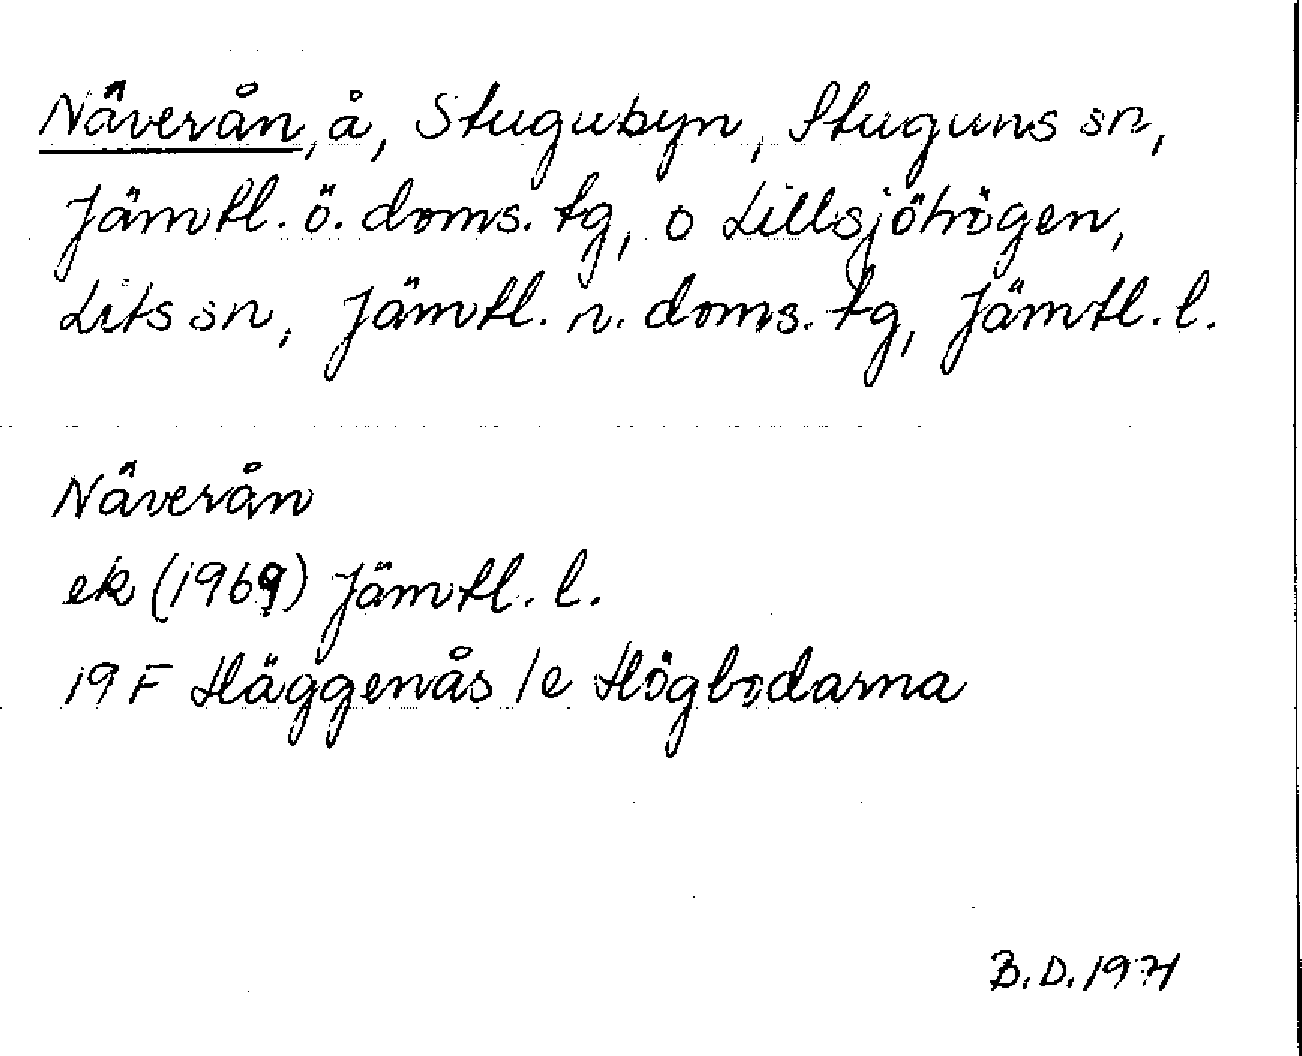 Näverån, å, Stugubyn, Stuguns sn,
Jämtl. ö. doms. tg, o Lillsjöhögen,
Lits sn, Jämtl. n. doms. tg, Jämtl. l.
Näverån
ek (1969) Jämtl. l.
19 F Häggenås 1e Högbodarna
B.D. 1971